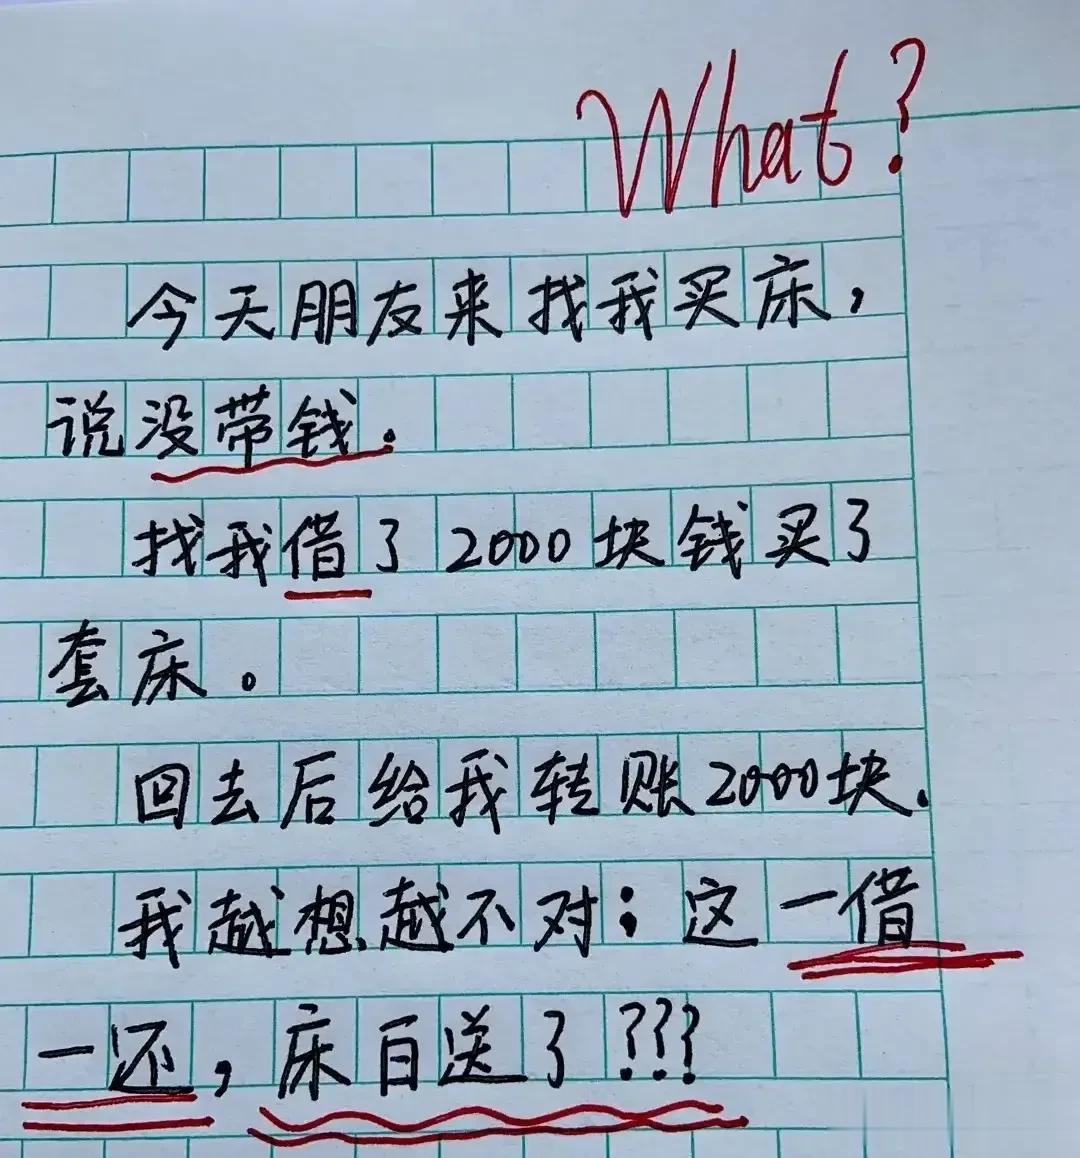 What?
今天朋友来找我买床，
说没带钱.
找我借了2000块钱买了
套床。
回去后给我转账2000块.
我越想越不对：这一借
一还，床白送了???